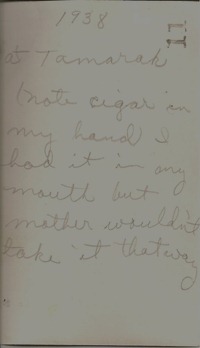 1938
at Tamarak
(note cigar in
my hand I
had it in my
mouth but
mother wouldn't
take it that way